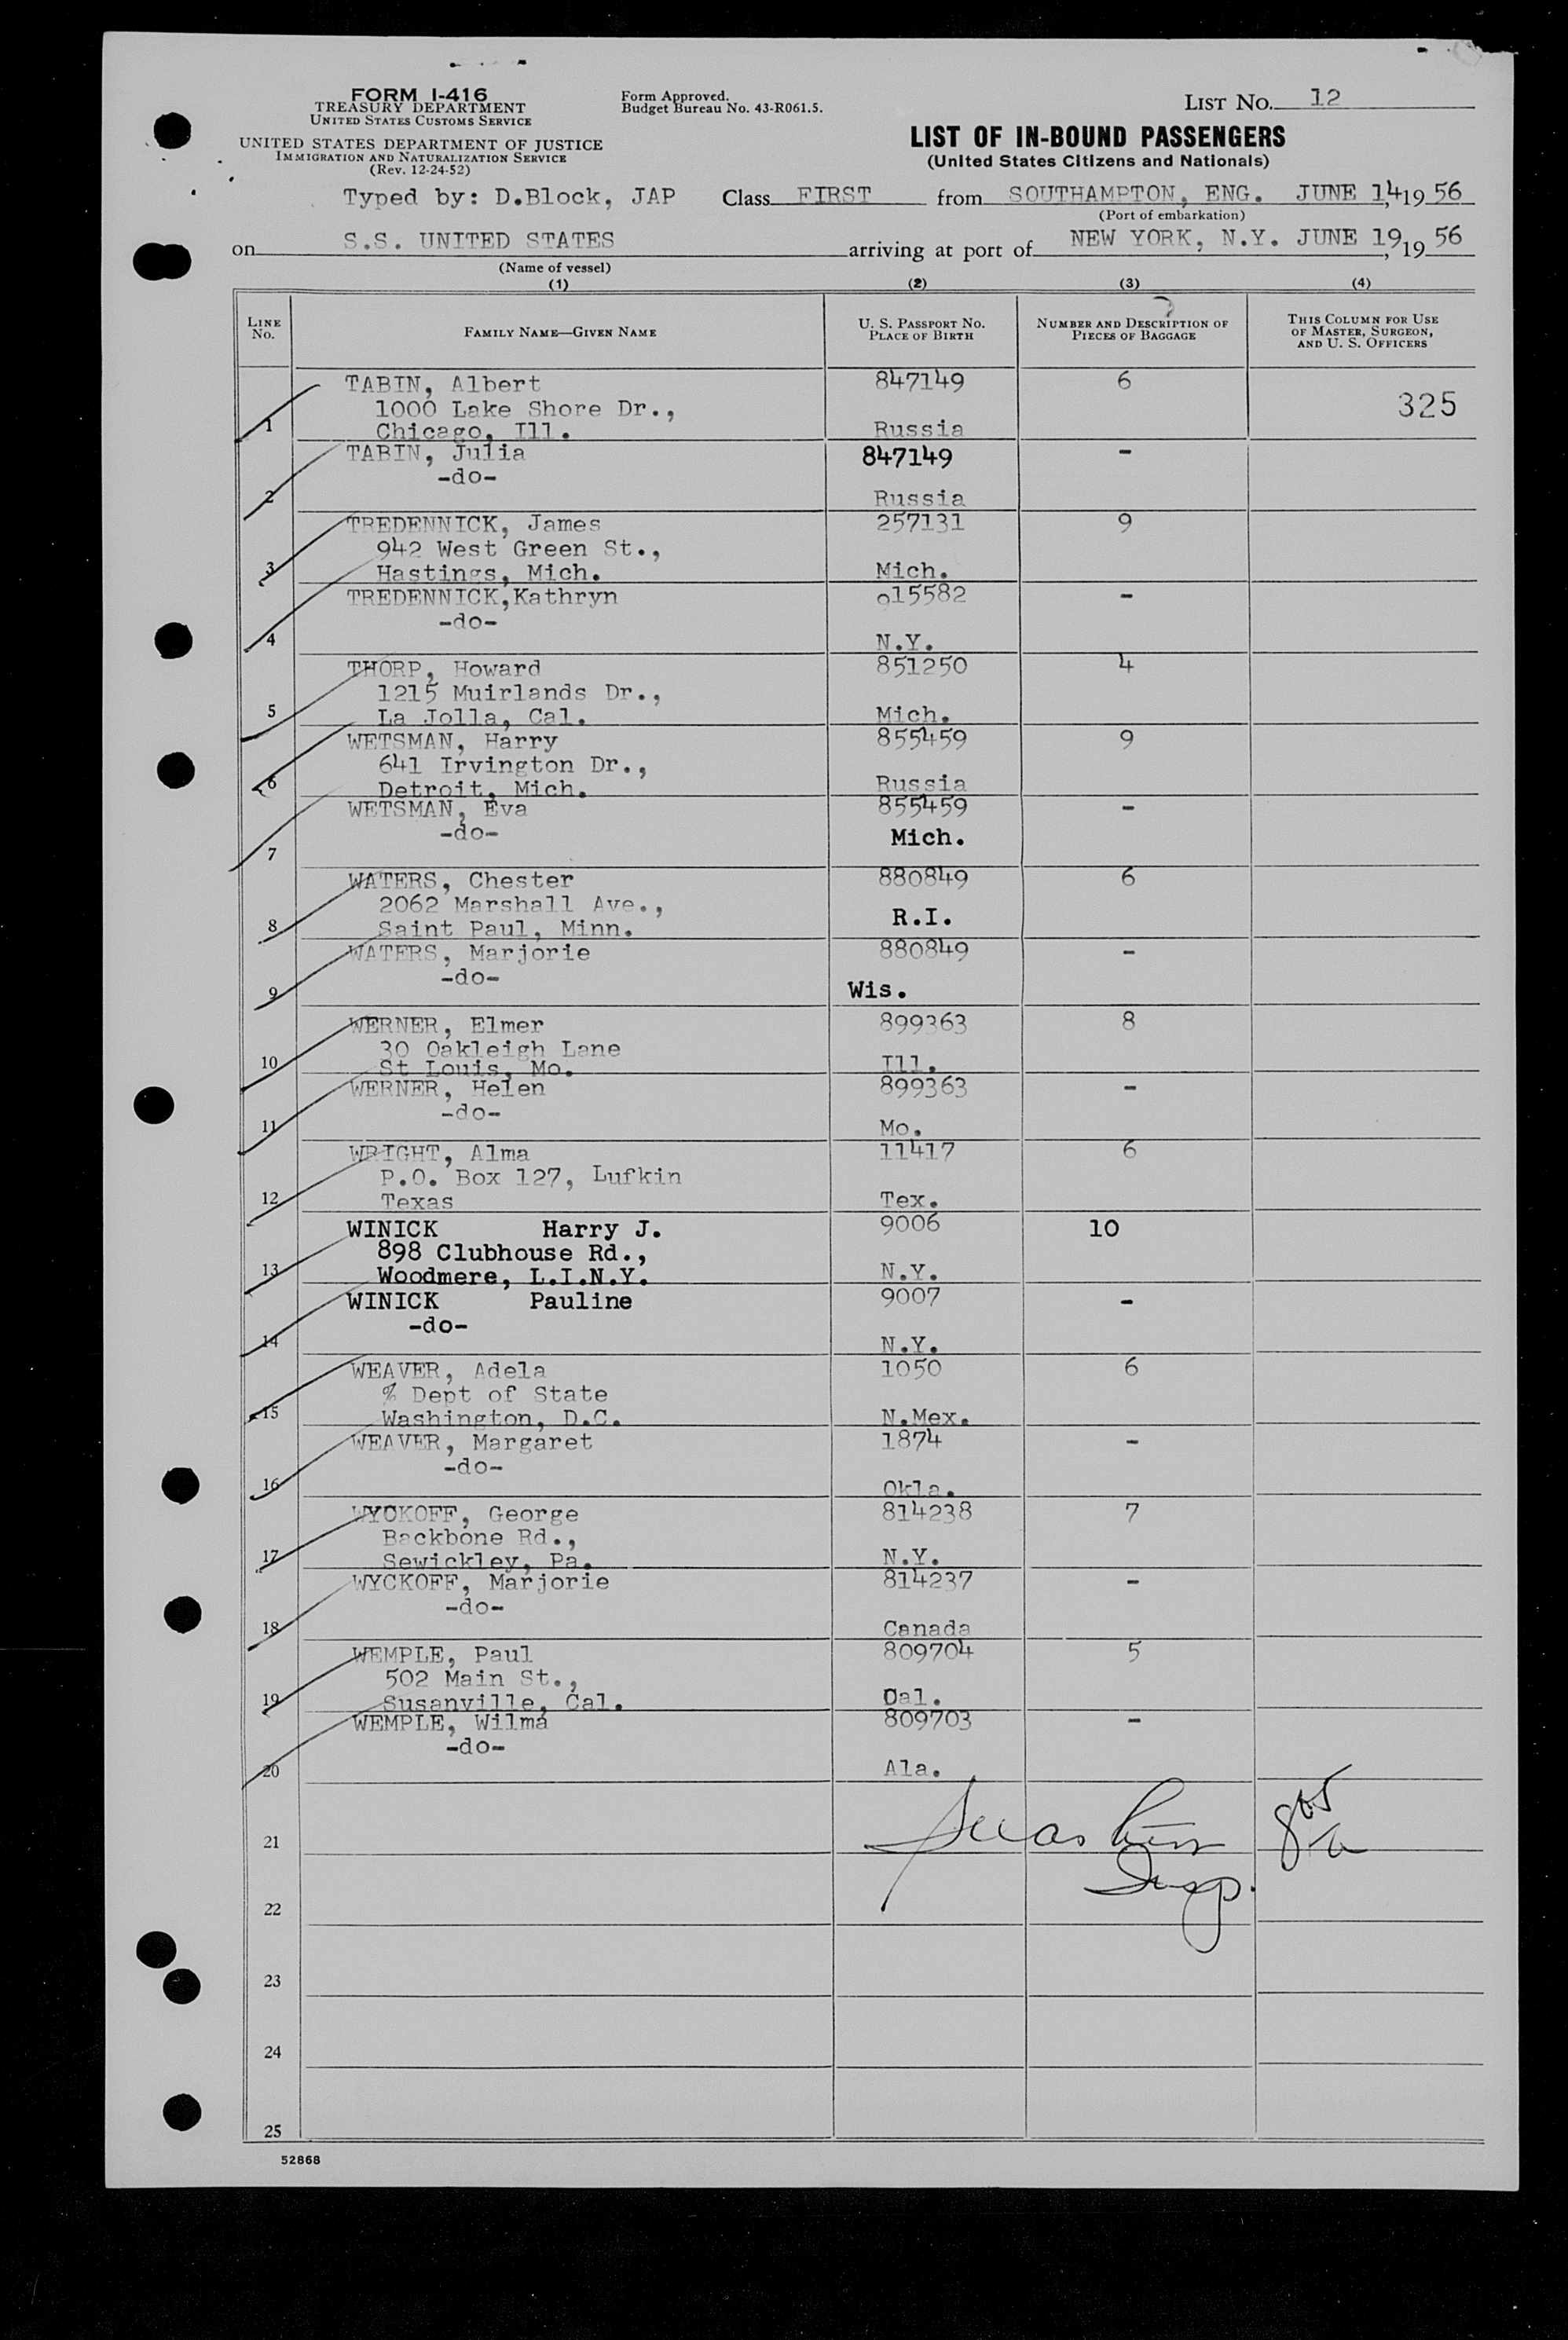 FORM I-416
TREASURY DEPARTMENT
UNITED STATES CUSTOMS SERVICE
UNITED STATES DEPARTMENT OF JUSTICE
IMMIGRATION AND NATURALIZATION SERVICE
(Rev. 12-24-52)
Form Approved.
Budget Bureau No. 43-R061.5.
LIST NO. 12
LIST OF IN-BOUND PASSENGERS
(United States Citizens and Nationals)
Typed by: D.Block, JAP Class FIRST from SOUTHAMPTON, ENG. JUNE 14, 19 56
(Port of embarkation)
on S.S. UNITED STATES arriving at port of NEW YORK, N.Y. JUNE 19, 19 56
(Name of vessel)
(1) (2) (3) (4)
LINE NO. FAMILY NAME—GIVEN NAME U. S. PASSPORT NO. PLACE OF BIRTH NUMBER AND DESCRIPTION OF PIECES OF BAGGAGE THIS COLUMN FOR USE OF MASTER, SURGEON, AND U. S. OFFICERS
TABIN, Albert 847149 6
1000 Lake Shore Dr., 325
1 Chicago, Ill. Russia
TABIN, Julia 847149 -
-do-
2 Russia
TREDENNICK, James 257131 9
942 West Green St.,
3 Hastings, Mich. Mich.
TREDENNICK,Kathryn o15582 -
-do-
4 N.Y.
THORP, Howard 851250 4
1215 Muirlands Dr.,
5 La Jolla, Cal. Mich.
WETSMAN, Harry 855459 9
641 Irvington Dr.,
6 Detroit, Mich. Russia
WETSMAN, Eva 855459 -
-do- Mich.
7
WATERS, Chester 880849 6
2062 Marshall Ave.,
8 Saint Paul, Minn. R.I.
WATERS, Marjorie 880849 -
-do-
9 Wis.
WERNER, Elmer 899363 8
30 Oakleigh Lane
10 St Louis, Mo. Ill.
WERNER, Helen 899363 -
-do-
11 Mo.
WRIGHT, Alma 11417 6
P.O. Box 127, Lufkin
12 Texas Tex.
WINICK Harry J. 9006 10
898 Clubhouse Rd.,
13 Woodmere, L.I.N.Y. N.Y.
WINICK Pauline 9007 -
-do-
14 N.Y.
WEAVER, Adela 1050 6
% Dept of State
15 Washington, D.C. N.Mex.
WEAVER, Margaret 1874 -
-do-
16 Okla.
WYCKOFF, George 814238 7
Backbone Rd.,
17 Sewickley, Pa. N.Y.
WYCKOFF, Marjorie 814237 -
-do-
18 Canada
WEMPLE, Paul 809704 5
502 Main St.,
19 Susanville, Cal. Cal.
WEMPLE, Wilma 809703 -
-do-
20 Ala.
21
Insp.
22
23
24
25
52868